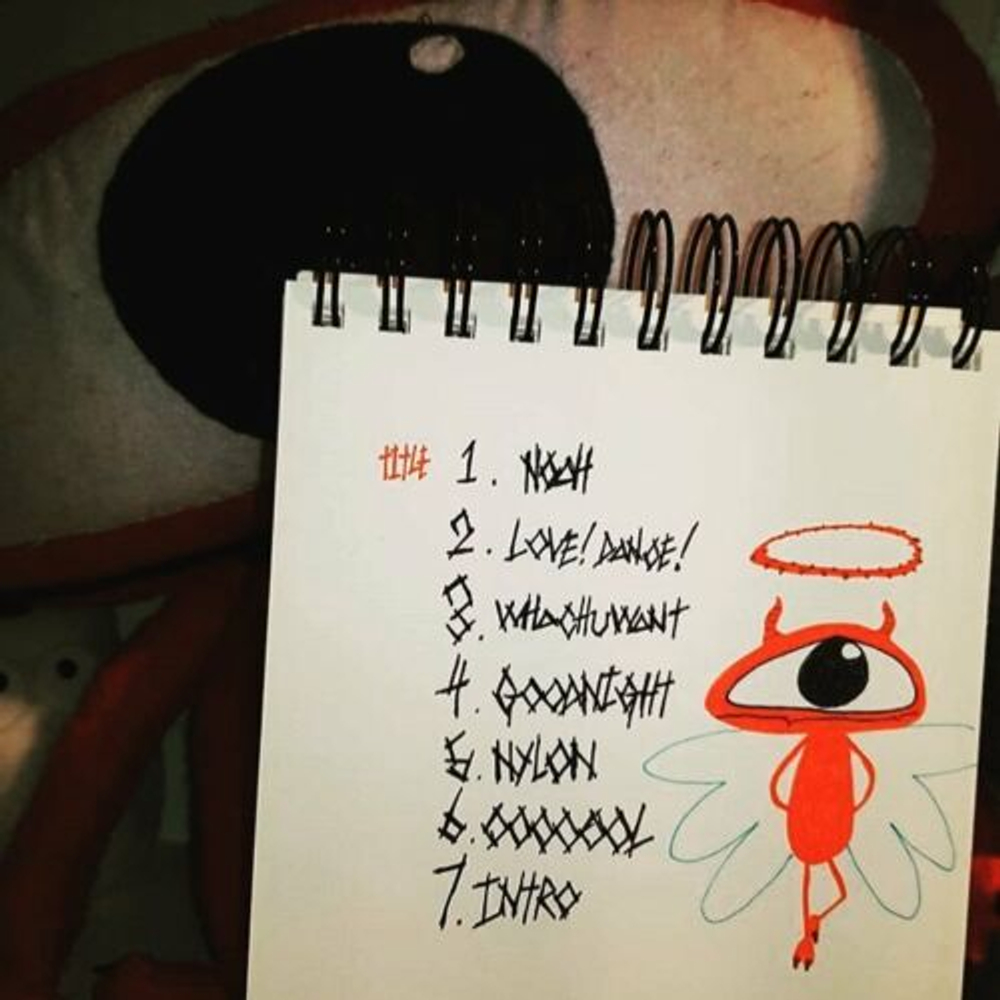 title 1. NOAH
2. LOVE! DANCE!
3. WHACHUWANT
4. GOODNIGHT
5. NYLON
6.
7. INTRO